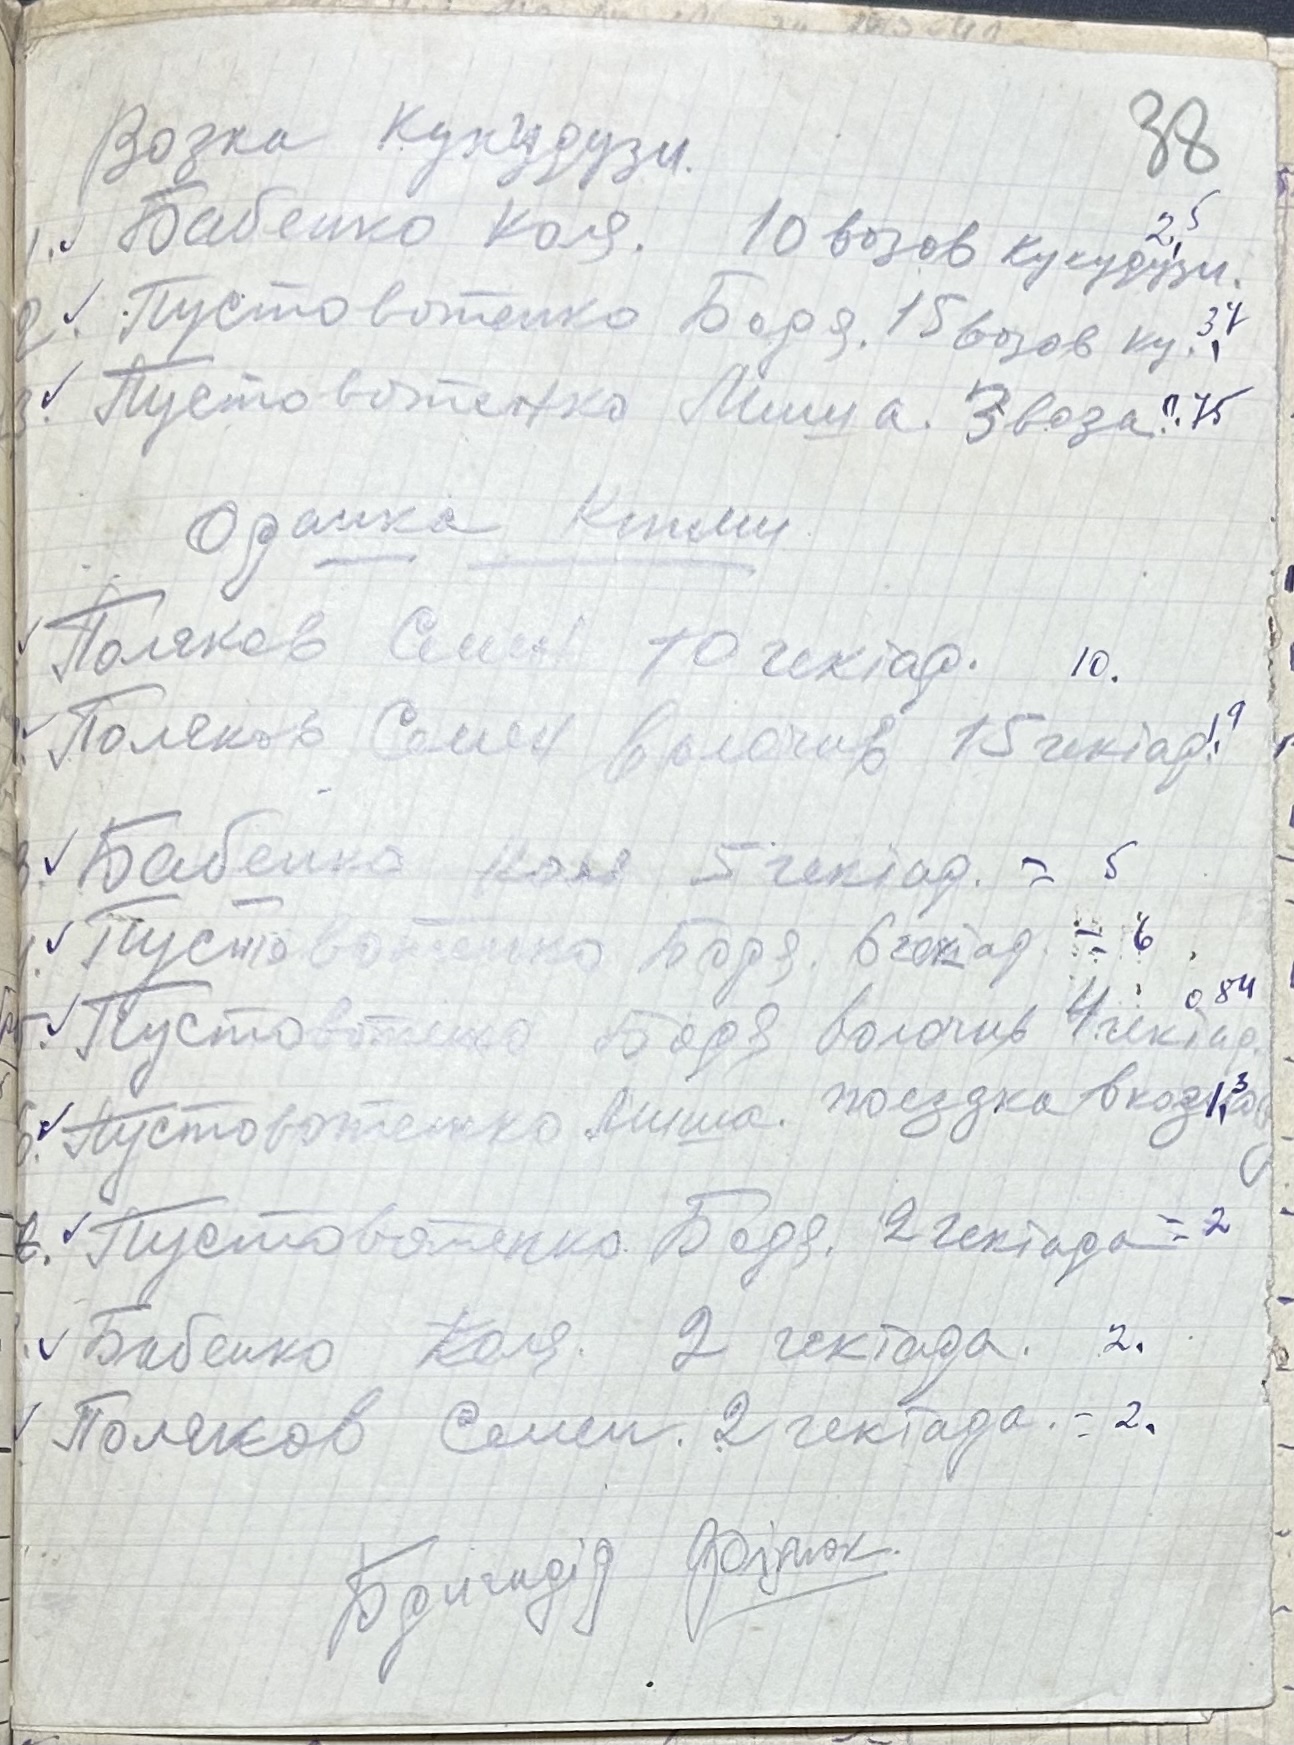 38
Возка Кукурузи.
1. Бабенко Коля. 10 возов кукурузи. 2,5
2. Пустовотенко Боря. 15 возов ку. 3,7
3. Пустовотенко Миша. 3 воза. 0.75
Оранка
Поляков Семен 10 гектар. 10.
Поляков Семен волочив 15 гектар. 1,9
3. Бабенко Коля 5 гектар. = 5
4. Пустовотенко Боря. 6 гектар. = 6
5. Пустовотенко Боря волочив 4 гектар. 0,84
6. Пустовотенко Миша. поездка в 1,3
7. Пустовотенко Боря. 2 гектара = 2
Бабенко Коля. 2 гектара. 2.
Поляков Семен. 2 гектара. = 2.
Бригадір